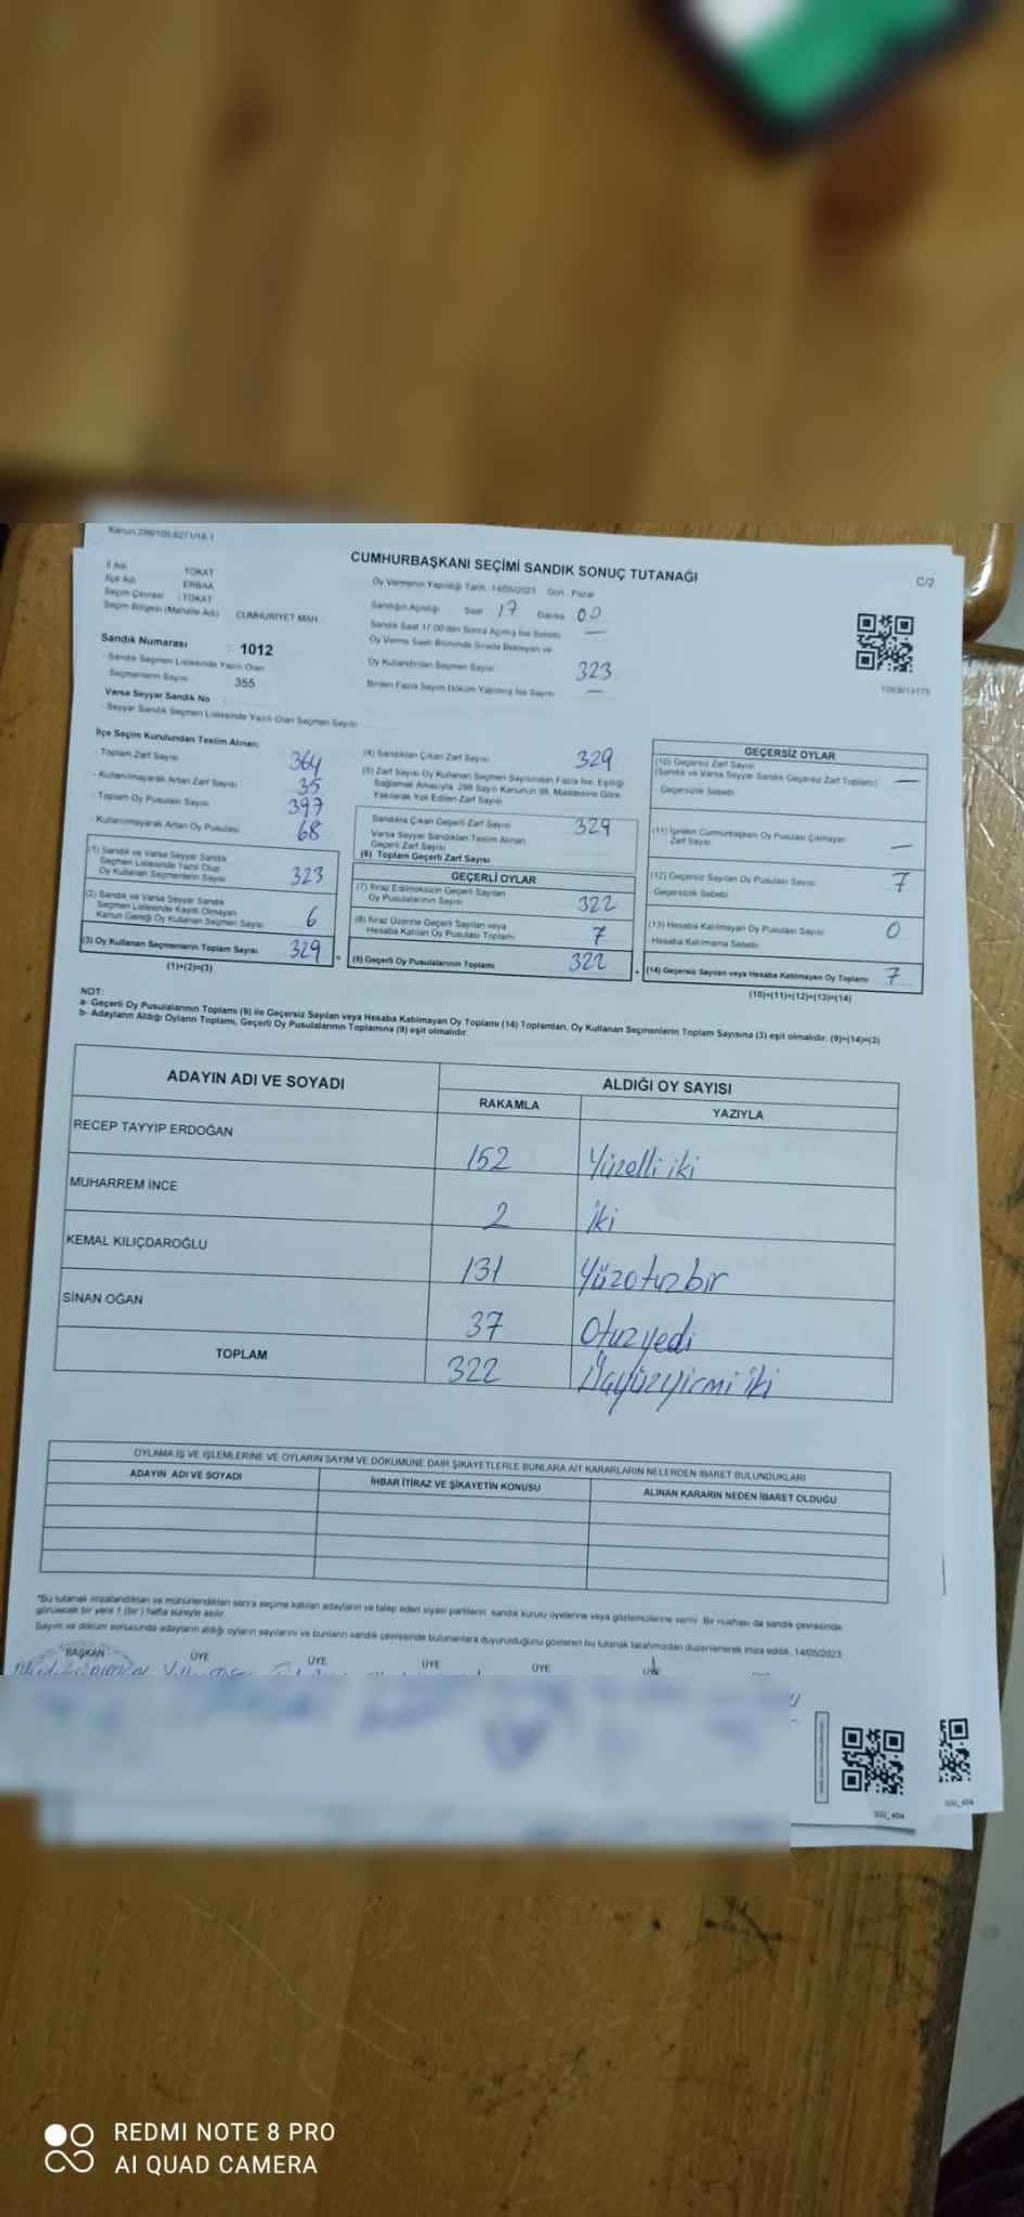 Kanun 298/105-6271/18-1
CUMHURBAŞKANI SEÇİMİ SANDIK SONUÇ TUTANAĞI
C/2
İl Adı TOKAT
İlçe Adı ERBAA
Seçim Çevresi : TOKAT
Seçim Bölgesi (Mahalle Adı) CUMHURİYET MAH.
Oy Vermenin Yapıldığı Tarih : 14/05/2023 Gün : Pazar
Sandığın Açıldığı Saat 17 Dakika 00
Sandık Saat 17:00'den Sonra Açılmış İse Sebebi —
Oy Verme Saati Bitiminde Sırada Bekleyen ve
Oy Kullandırılan Seçmen Sayısı 323
Birden Fazla Sayım Döküm Yapılmış İse Sayısı —
Sandık Numarası : 1012
Sandık Seçmen Listesinde Yazılı Olan
Seçmenlerin Sayısı 355
Varsa Seyyar Sandık No
Seyyar Sandık Seçmen Listesinde Yazılı Olan Seçmen Sayısı
İlçe Seçim Kurulundan Teslim Alınan;
- Toplam Zarf Sayısı 364
- Kullanılmayarak Artan Zarf Sayısı 35
- Toplam Oy Pusulası Sayısı 397
- Kullanılmayarak Artan Oy Pusulası 68
(1) Sandık ve Varsa Seyyar Sandık
Seçmen Listesinde Yazılı Olup
Oy Kullanan Seçmenlerin Sayısı 323
(2) Sandık ve Varsa Seyyar Sandık
Seçmen Listesinde Kayıtlı Olmayan
Kanun Gereği Oy Kullanan Seçmen Sayısı 6
(3) Oy Kullanan Seçmenlerin Toplam Sayısı 329
(1)+(2)=(3)
(4) Sandıktan Çıkan Zarf Sayısı 329
(5) Zarf Sayısı Oy Kullanan Seçmen Sayısından Fazla İse, Eşitliği
Sağlamak Amacıyla, 298 Sayılı Kanunun 98. Maddesine Göre
Yakılarak Yok Edilen Zarf Sayısı
Sandıkta Çıkan Geçerli Zarf Sayısı 329
Varsa Seyyar Sandıktan Teslim Alınan
Geçerli Zarf Sayısı
(6) Toplam Geçerli Zarf Sayısı
GEÇERLİ OYLAR
(7) İtiraz Edilmeksizin Geçerli Sayılan
Oy Pusulalarının Sayısı 322
(8) İtiraz Üzerine Geçerli Sayılan veya
Hesaba Katılan Oy Pusulası Toplamı 7
(9) Geçerli Oy Pusulalarının Toplamı 322
GEÇERSİZ OYLAR
(10) Geçersiz Zarf Sayısı
(Sandık ve Varsa Seyyar Sandık Geçersiz Zarf Toplamı) —
Geçersizlik Sebebi
(11) İçinden Cumhurbaşkanı Oy Pusulası Çıkmayan
Zarf Sayısı —
(12) Geçersiz Sayılan Oy Pusulası Sayısı 7
Geçersizlik Sebebi
(13) Hesaba Katılmayan Oy Pusulası Sayısı 0
Hesaba Katılmama Sebebi
(14) Geçersiz Sayılan veya Hesaba Katılmayan Oy Toplamı 7
(10)+(11)+(12)+(13)=(14)
NOT:
a- Geçerli Oy Pusulalarının Toplamı (9) ile Geçersiz Sayılan veya Hesaba Katılmayan Oy Toplamı (14) Toplamları, Oy Kullanan Seçmenlerin Toplam Sayısına (3) eşit olmalıdır. (9)+(14)=(3)
b- Adayların Aldığı Oyların Toplamı, Geçerli Oy Pusulalarının Toplamına (9) eşit olmalıdır.
ADAYIN ADI VE SOYADI
ALDIĞI OY SAYISI
RAKAMLA YAZIYLA
RECEP TAYYİP ERDOĞAN 152 Yüzelli iki
MUHARREM İNCE 2 iki
KEMAL KILIÇDAROĞLU 131 Yüzotuzbir
SİNAN OĞAN 37 Otuzyedi
TOPLAM 322 Üçyüzyirmi iki
OYLAMA İŞ VE İŞLEMLERİNE VE OYLARIN SAYIM VE DÖKÜMÜNE DAİR ŞİKAYETLERLE BUNLARA AİT KARARLARIN NELERDEN İBARET BULUNDUKLARI
ADAYIN ADI VE SOYADI İHBAR İTİRAZ VE ŞİKAYETİN KONUSU ALINAN KARARIN NEDEN İBARET OLDUĞU
*Bu tutanak imzalandıktan ve mühürlendikten sonra seçime katılan adayların ve talep eden siyasi partilerin sandık kurulu üyelerine veya gözlemcilerine verilir. Bir nüshası da sandık çevresinde
görülecek bir yere 1 (bir) hafta süreyle asılır.
Sayım ve döküm sonucunda adayların aldığı oyların sayılarını ve bunların sandık çevresinde bulunanlara duyurulduğunu gösteren bu tutanak tarafımızdan düzenlenerek imza edildi. 14/05/2023
BAŞKAN ÜYE ÜYE ÜYE ÜYE
REDMI NOTE 8 PRO
AI QUAD CAMERA